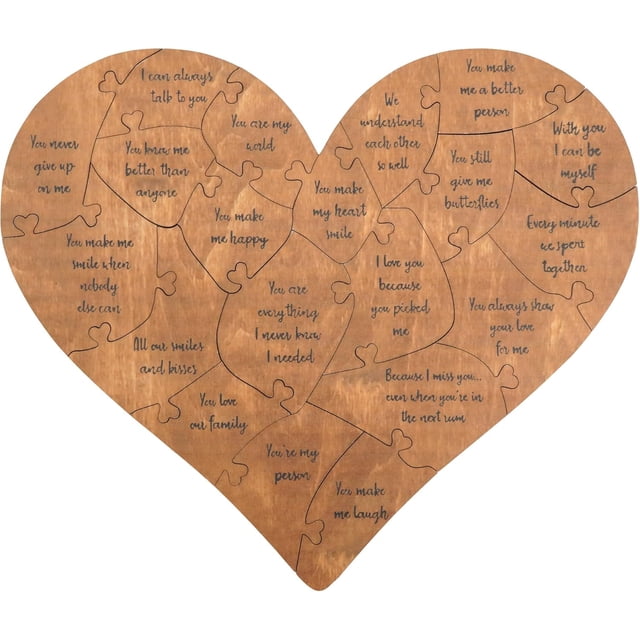 I can always
talk to you
You are my
world
We
understand
each other
so well
You make
me a better
person
You never
give up
on me
You know me
better than
anyone
You make
my heart
smile
You still
give me
butterflies
With you
I can be
myself
You make me
smile when
nobody
else can
You make
me happy
I love you
because
you picked
me
Every minute
we spent
together
You are
everything
I never knew
I needed
You always show
your love
for me
All our smiles
and kisses
You love
our family
Because I miss you...
even when you're in
the next rum
You're my
person
You make
me laugh